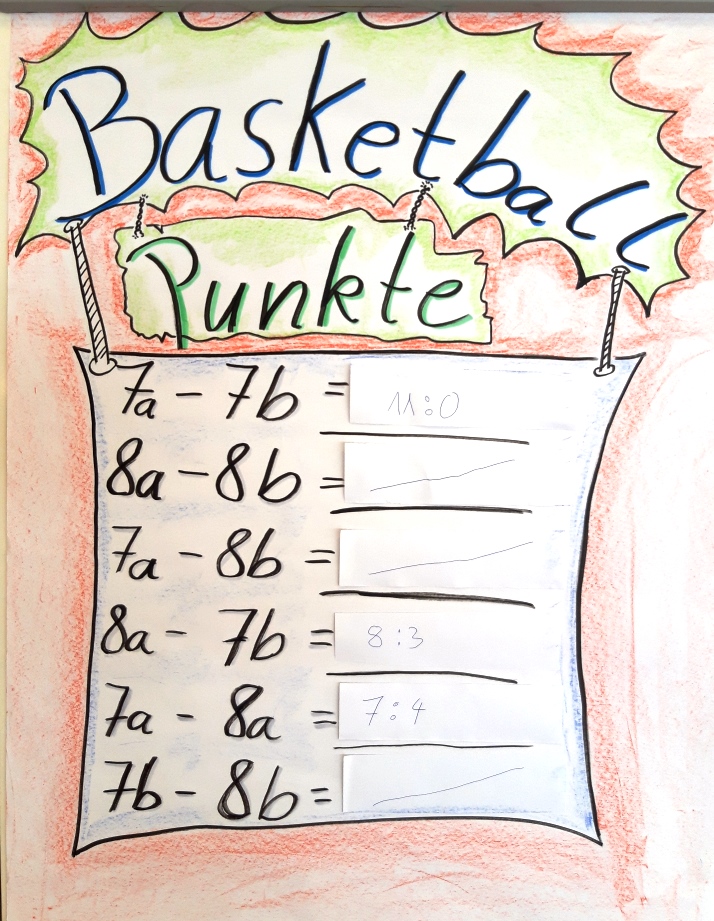 Basketball
Punkte
7a - 7b = 11:0
8a - 8b =
7a - 8b =
8a - 7b = 8:3
7a - 8a = 7:4
7b - 8b =